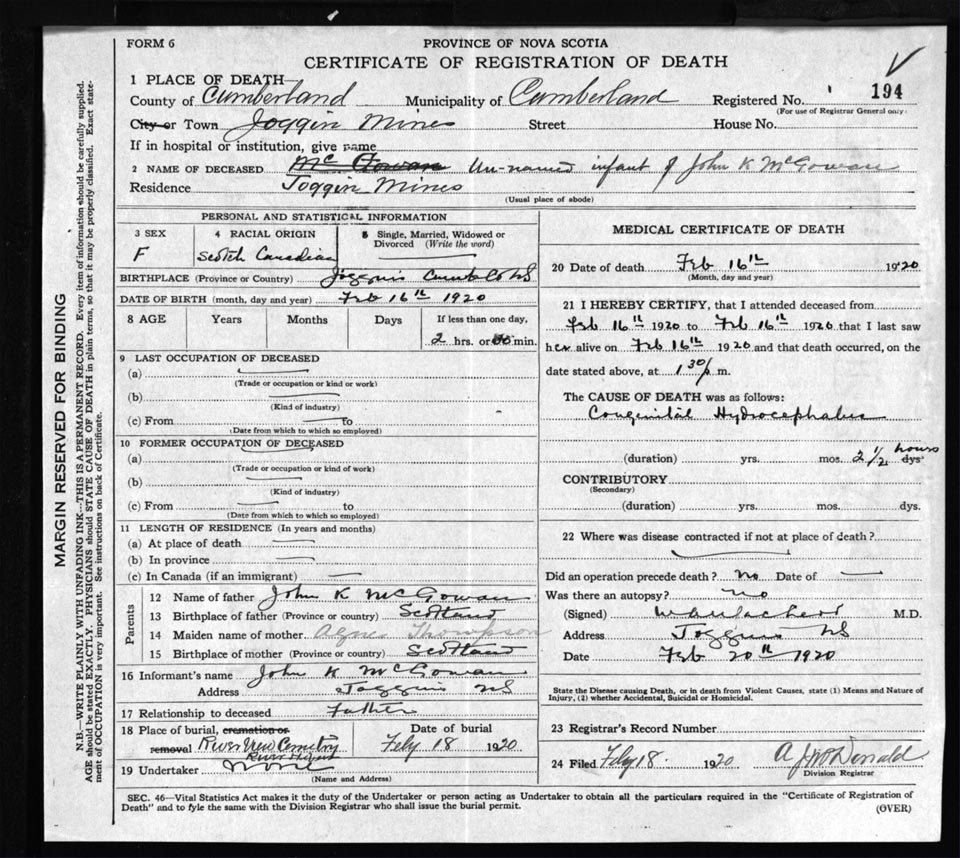 FORM 6
PROVINCE OF NOVA SCOTIA
CERTIFICATE OF REGISTRATION OF DEATH
1 PLACE OF DEATH
County of Cumberland Municipality of Cumberland Registered No. 194
(For use of Registrar General only)
City or Town Joggin Mines Street House No.
If in hospital or institution, give name
2 NAME OF DECEASED Mc Gowan Un-named infant of John K McGowan
Residence Joggin Mines
(Usual place of abode)
PERSONAL AND STATISTICAL INFORMATION
3 SEX F
4 RACIAL ORIGIN Scotch Canadian
5 Single, Married, Widowed or Divorced (Write the word)
BIRTHPLACE (Province or Country) Joggins Cumb Co NS
DATE OF BIRTH (month, day and year) Feb 16th 1920
8 AGE Years Months Days If less than one day,
2 hrs. or 30 min.
9 LAST OCCUPATION OF DECEASED
(a)
(Trade or occupation or kind or work)
(b)
(Kind of industry)
(c) From to
(Date from which to which so employed)
10 FORMER OCCUPATION OF DECEASED
(a)
(Trade or occupation or kind of work)
(b)
(Kind of industry)
(c) From to
(Date from which to which so employed)
11 LENGTH OF RESIDENCE (In years and months)
(a) At place of death
(b) In province
(c) In Canada (if an immigrant)
Parents
12 Name of father John K McGowan
13 Birthplace of father (Province or country) Scotland
14 Maiden name of mother Agnes Thompson
15 Birthplace of mother (Province or country) Scotland
16 Informant's name John K McGowan
Address Joggins NS
17 Relationship to deceased Father
18 Place of burial, cremation or removal River View Cemetry
Date of burial Feby 18 1920
19 Undertaker none
(Name and Address)
MEDICAL CERTIFICATE OF DEATH
20 Date of death Feb 16th 1920
(Month, day and year)
21 I HEREBY CERTIFY, that I attended deceased from
Feb 16th 1920 to Feb 16th 1920 that I last saw
her alive on Feb 16th 1920 and that death occurred, on the
date stated above, at 1 30 p m.
The CAUSE OF DEATH was as follows:
Congenital Hydrocephalus
(duration) yrs. mos. 2 1/2 hours dys.
CONTRIBUTORY
(Secondary)
(duration) yrs. mos. dys.
22 Where was disease contracted if not at place of death?
Did an operation precede death? no Date of
Was there an autopsy? no
(Signed) M.D.
Address Joggins NS
Date Feb 20th 1920
State the Disease causing Death, or in death from Violent Causes, state (1) Means and Nature of
Injury, (2) whether Accidental, Suicidal or Homicidal.
23 Registrar's Record Number
24 Filed Feby 18. 1920 A J McDonald
Division Registrar
SEC. 46—Vital Statistics Act makes it the duty of the Undertaker or person acting as Undertaker to obtain all the particulars required in the "Certificate of Registration of
Death" and to fyle the same with the Division Registrar who shall issue the burial permit.
(OVER)
MARGIN RESERVED FOR BINDING
N.B.—WRITE PLAINLY WITH UNFADING INK—THIS IS A PERMANENT RECORD. Every item of information should be carefully supplied.
AGE should be stated EXACTLY. PHYSICIANS should STATE CAUSE OF DEATH in plain terms, so that it may be properly classified. Exact state-
ment of OCCUPATION is very important. See instructions on back of Certificate.